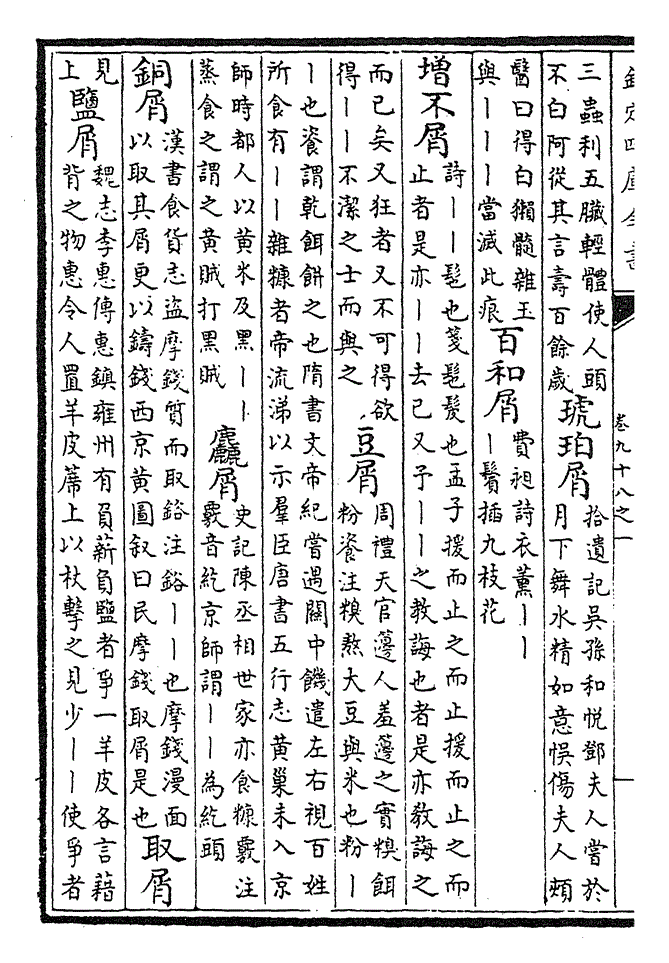 欽定四庫全書
卷九十八之一
三蟲利五臟輕體使人頭
不白阿從其言壽百餘歲
琥珀屑
拾遺記吳孫和悅鄧夫人嘗於
月下舞水精如意悞傷夫人頰
醫曰得白獺髓雜玉
與丨丨丨當滅此痕
百和屑
費昶詩衣薰丨丨
丨鬢插九枝花
增不屑
詩丨丨髢也箋髢髮也孟子援而止之而止援而止之而
止者是亦丨丨去已又予丨丨之教誨也者是亦教誨之
而已矣又狂者又不可得欲
得丨丨不潔之士而與之
豆屑
周禮天官籩人羞籩之實糗餌
粉餈注糗熬大豆與米也粉丨
丨也餈謂乾餌餅之也隋書文帝紀嘗遇關中饑遣左右視百姓
所食有丨丨雜糠者帝流涕以示羣臣唐書五行志黃巢未入京
師時都人以黃米及黑丨丨
蒸食之謂之黃賊打黑賊
麤屑
史記陳丞相世家亦食糠覈注
覈音紇京師謂丨丨為紇頭
銅屑
漢書食貨志盜摩錢質而取鋊注鋊丨丨也摩錢漫面
以取其屑更以鑄錢西京黃圖叙曰民摩錢取屑是也
取屑
見
上
鹽屑
魏志李惠傳惠鎮雍州有負薪負鹽者爭一羊皮各言藉
背之物惠令人置羊皮蓆上以杖擊之見少丨丨使爭者